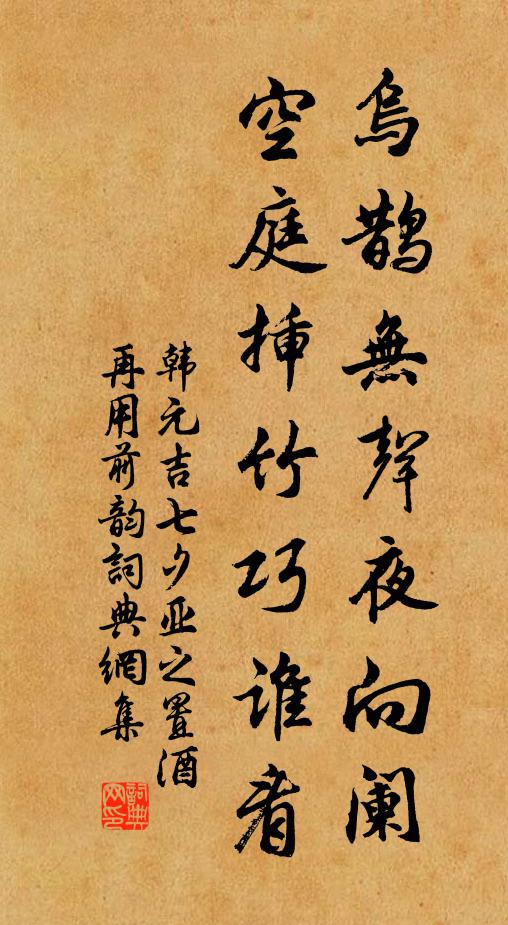 烏鵲無聲夜向阑
空庭揷竹巧谁看
韩元吉七夕亚之置酒
再用前韵詞典網集
詞典
网印